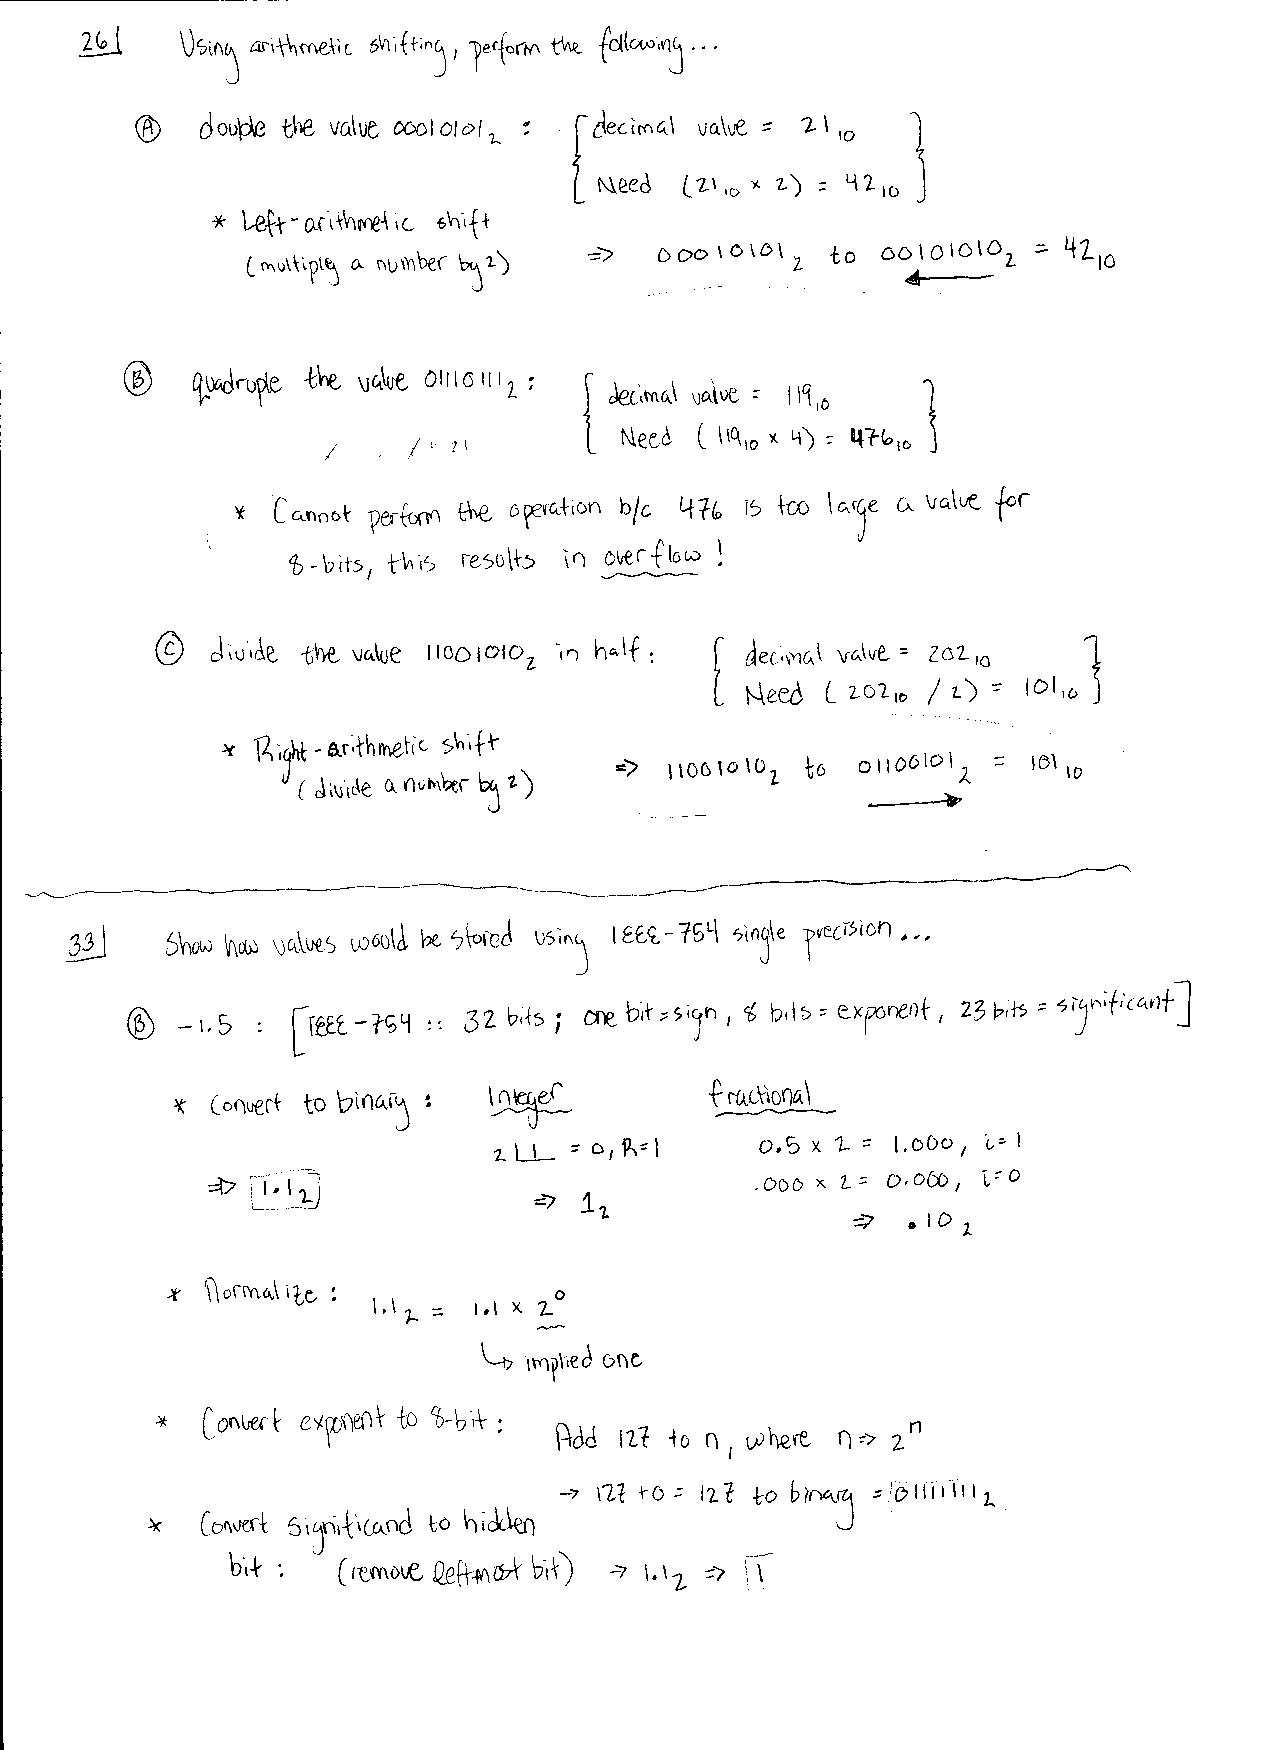 26| Using arithmetic shifting, perform the following...
Ⓐ double the value 00010101₂ : { decimal value = 21₁₀
Need (21₁₀ × 2) = 42₁₀ }
* Left-arithmetic shift
(multiply a number by 2) ⇒ 00010101₂ to 00101010₂ = 42₁₀
Ⓑ quadruple the value 01110111₂ : { decimal value = 119₁₀
Need (119₁₀ × 4) = 476₁₀ }
* Cannot perform the operation b/c 476 is too large a value for
8-bits, this results in overflow!
Ⓒ divide the value 11001010₂ in half : { decimal value = 202₁₀
Need (202₁₀ / 2) = 101₁₀ }
* Right-arithmetic shift
(divide a number by 2) ⇒ 11001010₂ to 01100101₂ = 101₁₀
33| Show how values would be stored using IEEE-754 single precision...
Ⓑ -1.5 : [IEEE-754 :: 32 bits; one bit = sign, 8 bits = exponent, 23 bits = significant]
* Convert to binary : Integer fractional
2⌊1 = 0, R=1 0.5 × 2 = 1.000, i=1
⇒ 1.1₂ .000 × 2 = 0.000, i=0
⇒ 1₂ ⇒ .10₂
* Normalize : 1.1₂ = 1.1 × 2⁰
↳ implied one
* Convert exponent to 8-bit : Add 127 to n, where n ⇒ 2ⁿ
→ 127 + 0 = 127 to binary = 01111111₂
* Convert significand to hidden
bit : (remove leftmost bit) → 1.1₂ ⇒ 1